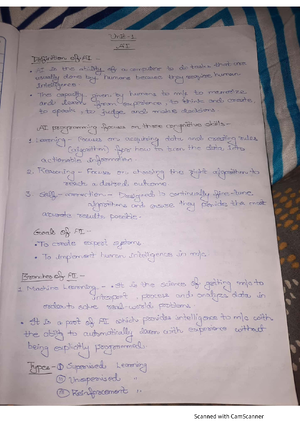 Unit-1
AI
Definition of AI -
• It is the ability of a computer to do tasks that are
usually done by humans because they require human
Intelligence.
• The capacity given by humans to m/c to memorize
and learn from experience, to think and create
to speak, to judge and make decisions.
AI programming focuses on three cognitive skills -
1. Learning - Focus on acquiring data and creating rules
(algorithm) for how to turn the data into
actionable information.
2. Reasoning - Focus on choosing the right algorithm to
reach a desired outcome.
3. Self-correction - Designed to continually fine-tune
algorithms and ensure they provide the most
accurate results possible.
Goals of AI -
• To create expert systems
• To implement human intelligence in m/c.
Branches of AI -
Machine Learning - • It is the science of getting m/c to
interpret, process and analyze data in
order to solve real-world problems.
• It is a part of AI which provides intelligence to m/c with
the ability to automatically learn with experience without
being explicitly programmed.
Types - ① Supervised Learning
② Unsupervised "
③ Reinforcement "
Scanned with CamScanner